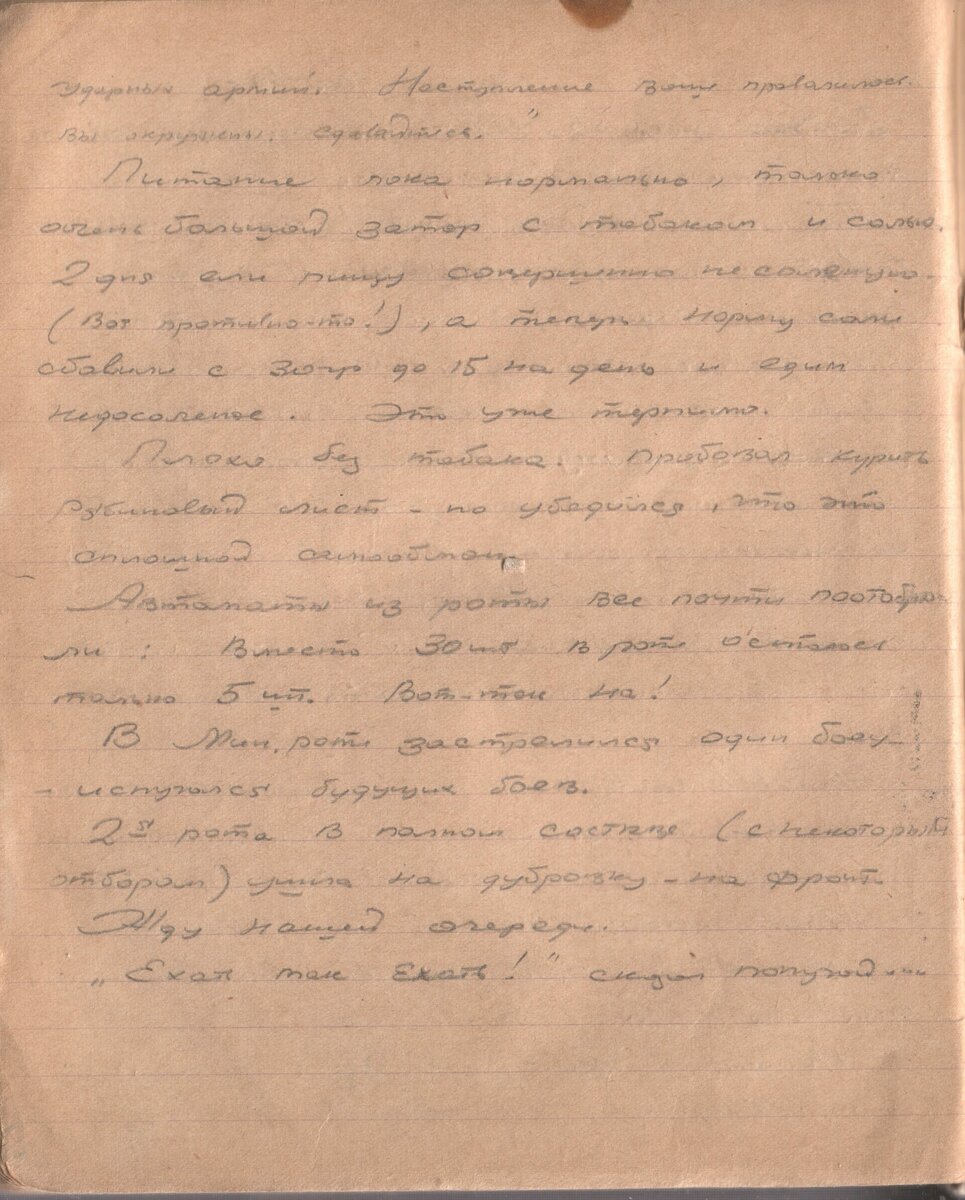 ударных армий. Наступление ваше провалилось.
Вы окружены. Сдавайтесь."
Питание пока нормально, только
очень большой затор с табаком и солью.
2 дня ели пищу совершенно несоленую
(Вот противно-то!), а теперь норму соли
сбавили с 30 гр до 15 на день и едим
недосоленое. Это уже терпимо.
Плохо без табака. Пробовал курить
рябиновый лист – но убедился, что это
сплошной самообман.
Автоматы из роты все почти поотобра-
ли: Вместо 30 шт в роте осталось
только 5 шт. Вот-так на!
В Мин. роте застрелился один боец
– испугался будущих боев.
2я рота в полном составе (с некоторым
отбором) ушла на дубровку – на фронт.
Жду нашей очереди.
„Ехать так ехать!" сказал попугай